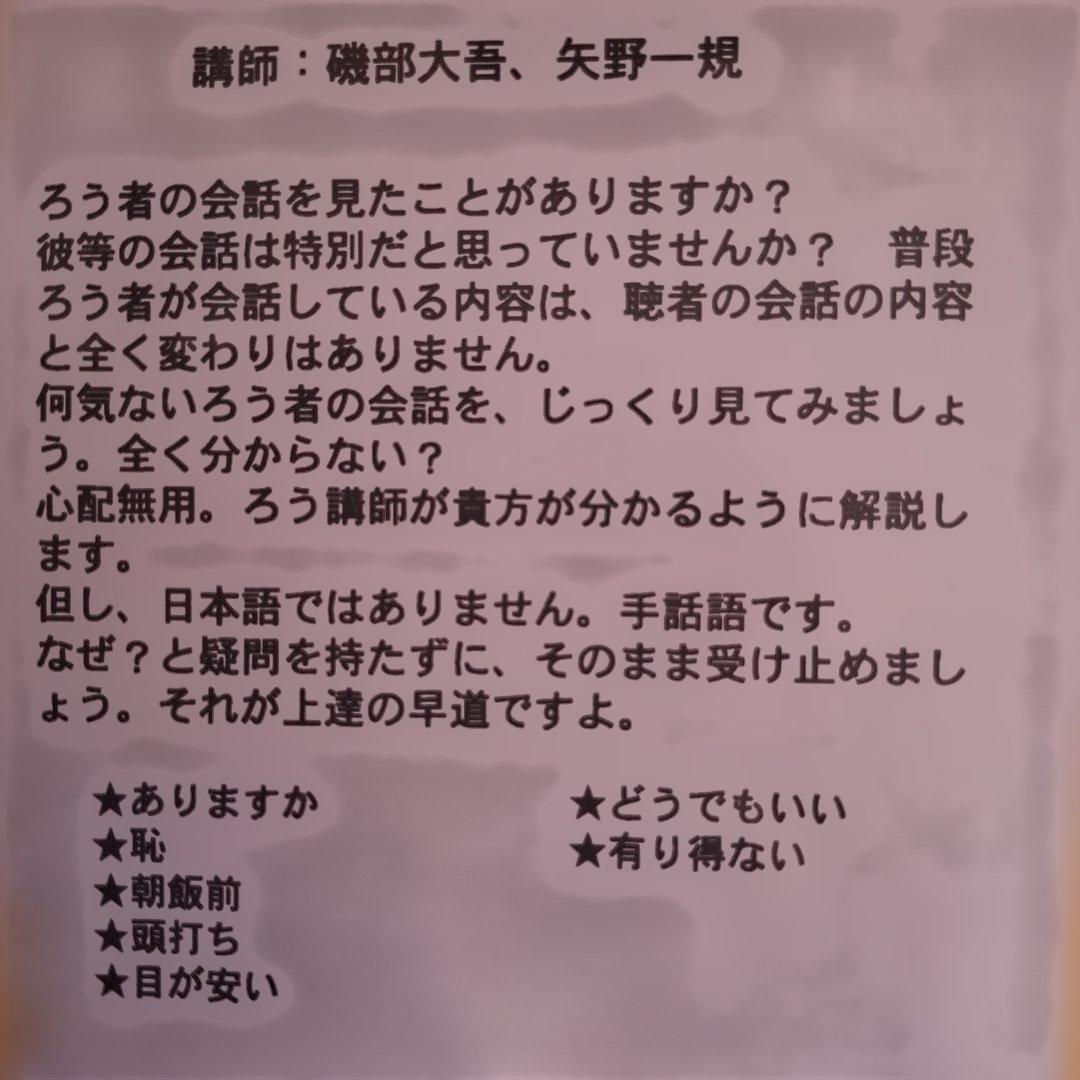 講師：磯部大吾、矢野一規
ろう者の会話を見たことがありますか？
彼等の会話は特別だと思っていませんか？　普段
ろう者が会話している内容は、聴者の会話の内容
と全く変わりはありません。
何気ないろう者の会話を、じっくり見てみましょ
う。全く分からない？
心配無用。ろう講師が貴方が分かるように解説し
ます。
但し、日本語ではありません。手話語です。
なぜ？と疑問を持たずに、そのまま受け止めまし
ょう。それが上達の早道ですよ。
★ありますか
★恥
★朝飯前
★頭打ち
★目が安い
★どうでもいい
★有り得ない